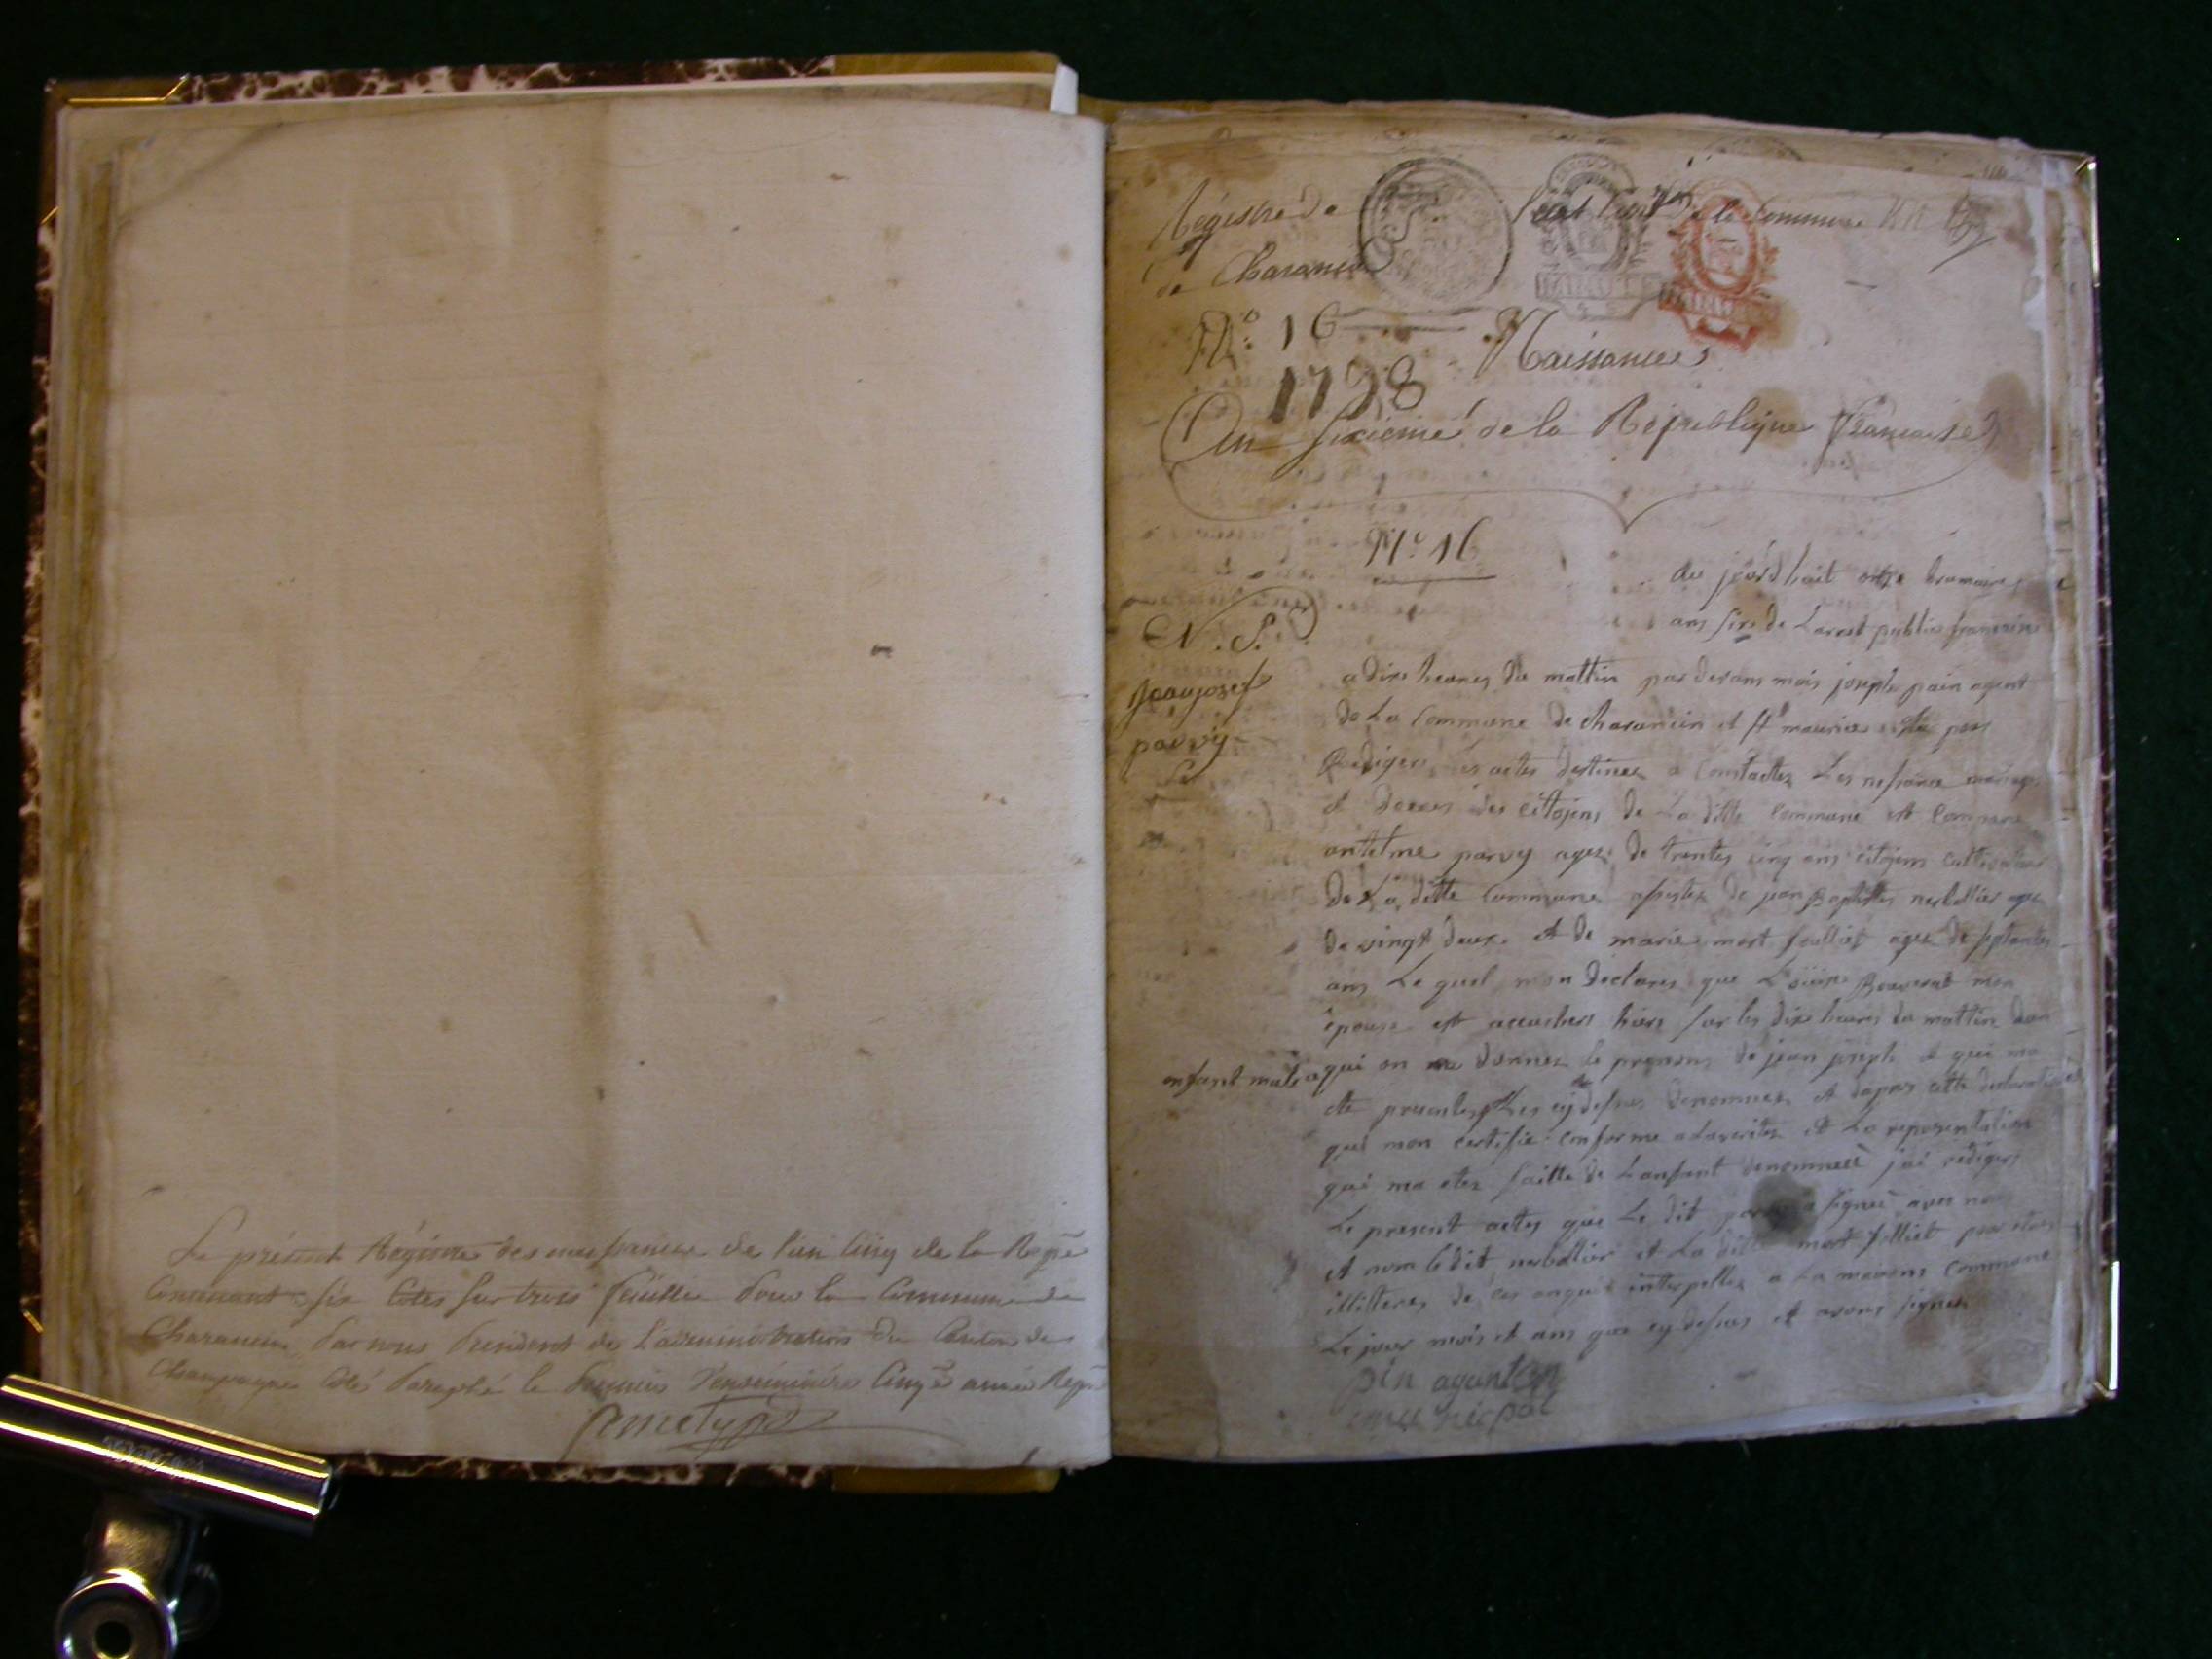 Le présent Régistre des naissances de l'an cinq de la Repe
Contenant six Cotes sur trois feuilles pour la Commune de
Charancin, par nous President de l'administration du Canton de
Champagne Coté paraphé le premier Vendémiaire Cinqe année Repe
Régistre de l'état Civil de la Commune
de Charancin
No. 16 Naissances
1798
An Sixième de la République Française
No. 16
N. S.
Jean josef
parvy
au jourdhuit onze brumaire
ans six de Larest publis francaise
a dixe heures du mattin par devans mois joseph pain agent
de La Commune de charancin et st maurice elu pour
Rediger les actes destinee a Constactes Les nesance mariage
et deces des citojens de La ditte Commune est Compare
antelme parvy agez de trentes cinq ans citojens cultivateur
de La ditte Commune assistez de jean Baptistes nerbollier age
de vingt deux et de marie mort folliet agee de septantes
ans Le quel mon declares que Bouverat mon
epouse est accuchers hiers sur les dixe heures du mattin dun
enfant male aqui on donner le prenom de jean joseph et qui ma
ete presentes Les cy desus denommes et dapres cette declaration
quil mon certifie conforme alaverites et La representation
qui ma etes faitte de Lanfant denommeé j'ai rediger
Le present actes que Le dit parvy a signeé avec nous
et nom le dit nerbollier et La ditte mort folliet pour etres
illitteres de ces enquis interpelles a La maisons Commune
Le jour mois et ans que cy desus et avons signes
pin agant
municipal